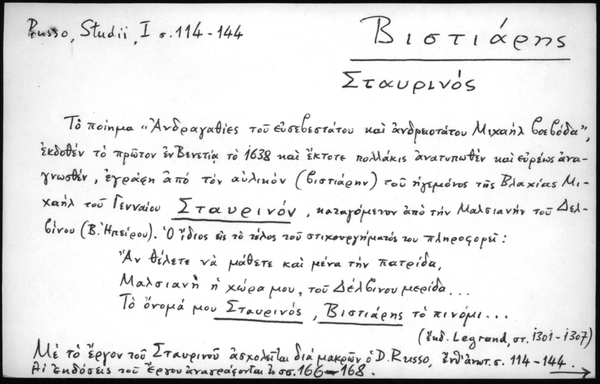 Russo, Studii, I σ. 114-144
Βιστιάρης
Σταυρινός
Τὸ ποίημα "Ἀνδραγαθίες τοῦ εὐσεβεστάτου καὶ ἀνδρειοτάτου Μιχαὴλ βοεβόδα",
ἐκδοθὲν τὸ πρῶτον ἐν Βενετίᾳ τὸ 1638 καὶ ἔκτοτε πολλάκις ἀνατυπωθὲν καὶ εὐρέως ἀνα-
γνωσθέν, ἐγράφη ἀπὸ τὸν αὐλικὸν (βιστιάρην) τοῦ ἡγεμόνος τῆς Βλαχίας Μι-
χαὴλ τοῦ Γενναίου Σταυρινόν, καταγόμενον ἀπὸ τὴν Μαλσιανὴν τοῦ Δελ-
βίνου (Β. Ἠπείρου). Ὁ ἴδιος εἰς τὸ τέλος τοῦ στιχουργήματός του πληροφορεῖ:
Ἂν θέλετε νὰ μάθετε καὶ μένα τὴν πατρίδα,
Μαλσιανὴ ἡ χώρα μου, τοῦ Δέλβινου μερίδα...
Τὸ ὄνομά μου Σταυρινός, Βιστιάρης τὸ πινόμι...
(ἔκδ. Legrand, στ. 1301-1307)
Μὲ τὸ ἔργον τοῦ Σταυρινοῦ ἀσχολεῖται διὰ μακρῶν ὁ D. Russo, ἔνθ' ἀνωτ. σ. 114-144.
Αἱ ἐκδόσεις τοῦ ἔργου ἀναγράφονται ἐν σσ. 166-168.